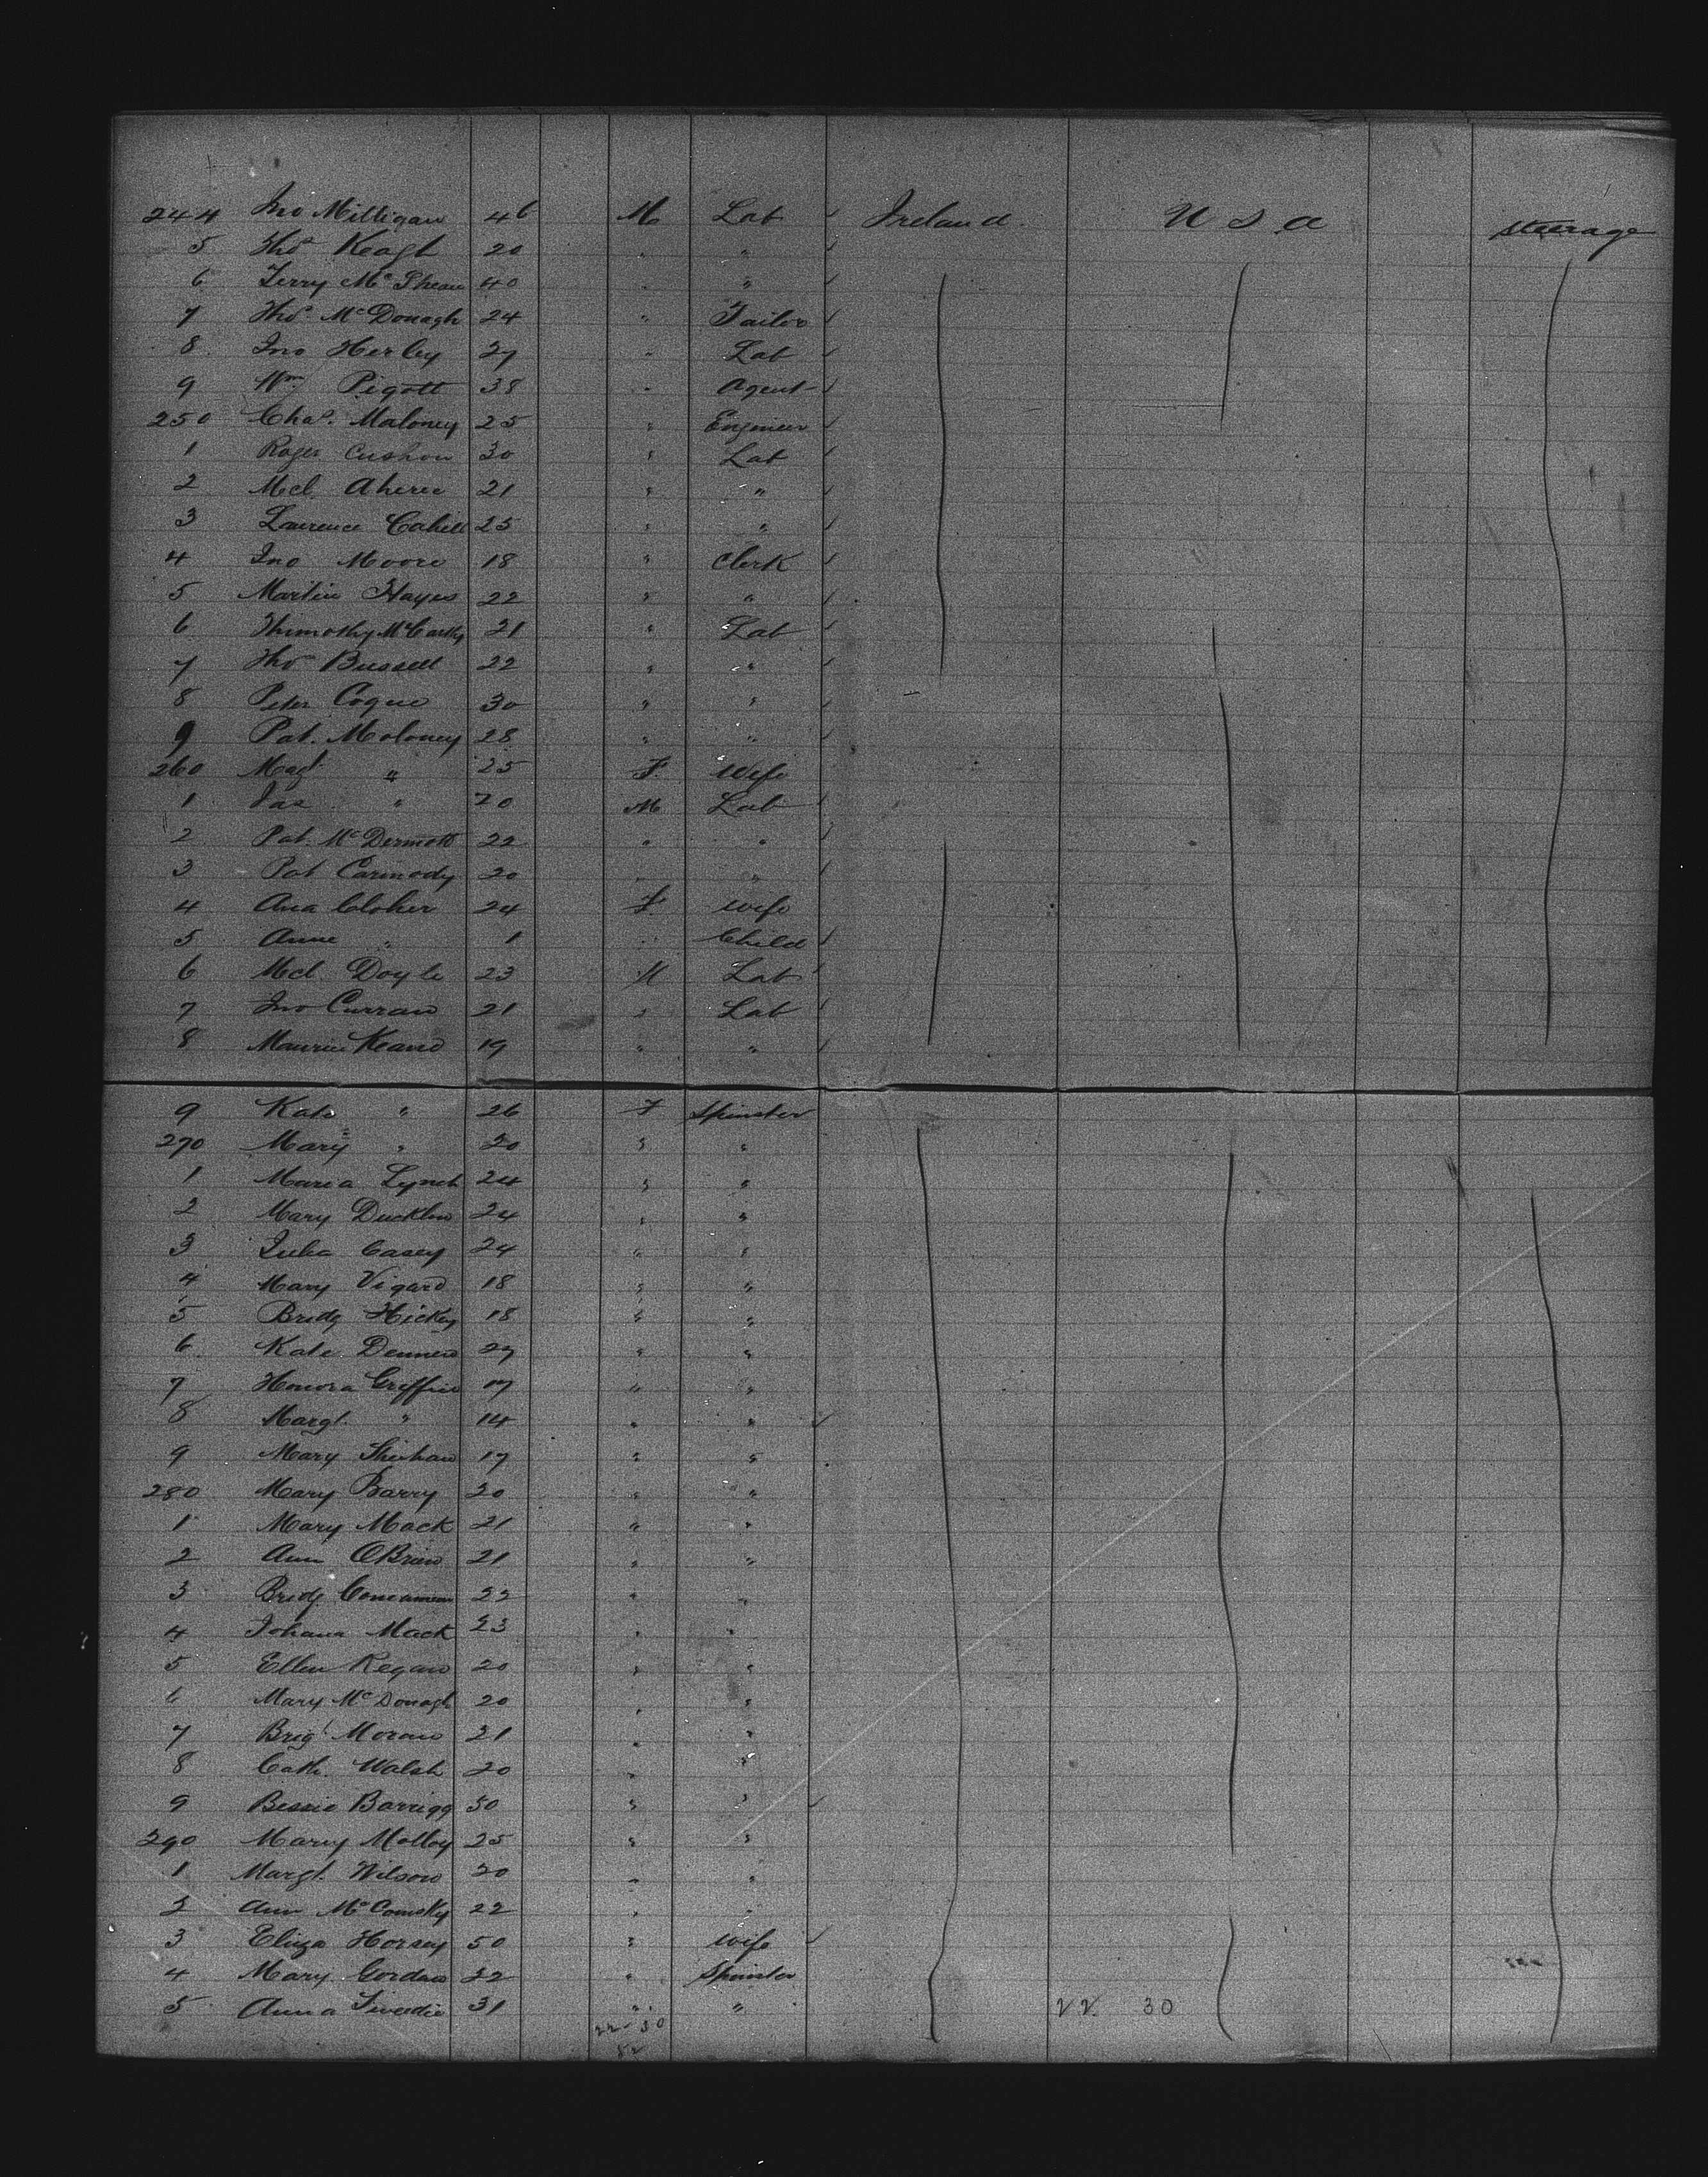 244 Jno Milligan 46 M Lab Ireland U S A steerage
5 Thos Keagh 20 " "
6 Terry Mc 40 " "
7 Thos McDonagh 24 " Tailor
8 Jno Herley 27 " Lab
9 Wm Pigott 38 " Agent
250 Chas. Maloney 25 " Engineer
1 Roger Cushon 30 " Lab
2 Mcl. Aherne 21 " "
3 Laurence Cahill 25 " "
4 Jno Moore 18 " Clerk
5 Martin Hayes 22 " "
6 Thimothy McCarthy 21 " Lab
7 Thos Bussell 22 " "
8 Peter Cogue 30 " "
9 Pat. Moloney 28 " "
260 Magt " 25 F Wife
1 Jas " 20 M Lab
2 Pat. McDermott 22 " "
3 Pat Carmody 20 " "
4 Ana Cloher 24 F Wife
5 Anne " 1 " Child
6 Mcl Doyle 23 M Lab
7 Jno Curran 21 " Lab
8 Maurice Keane 19 " "
9 Kate " 26 F Spinster
270 Mary " 20 " "
1 Maria Lynch 24 " "
2 Mary 24 " "
3 Julia Casey 24 " "
4 Mary Vigard 18 " "
5 Bridg Hickey 18 " "
6 Kate 27 " "
7 Honora Griffin 17 " "
8 Margt. " 14 " "
9 Mary Shehan 17 " "
280 Mary Barry 20 " "
1 Mary Mack 21 " "
2 Ann OBrien 21 " "
3 Bridg 22 " "
4 Johana Mack 23 " "
5 Ellen Regan 20 " "
6 Mary McDonagh 20 " "
7 Brigt Moran 21 " "
8 Cath. Walsh 20 " "
9 Bessie Barrigg 30 " "
290 Mary Molloy 25 " "
1 Margt. Wilson 20 " "
2 Ann McComsky 22 " "
3 Eliza Horsey 50 " Wife
4 Mary Gordan 22 " Spinster
5 Anna 31 " " 22 30
22-30
52